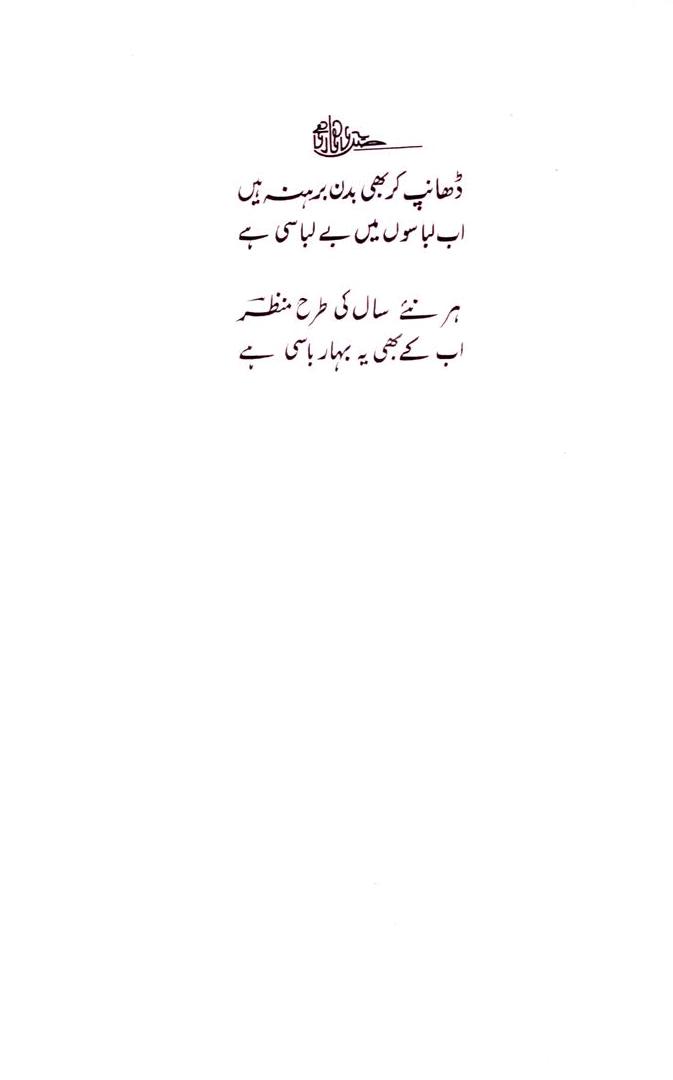 ڈھانپ کر بھی بدن برہنہ ہیں
اب لباسوں میں بے لباسی ہے
ہر نئے سال کی طرح منظرؔ
اب کے بھی یہ بہار باسی ہے